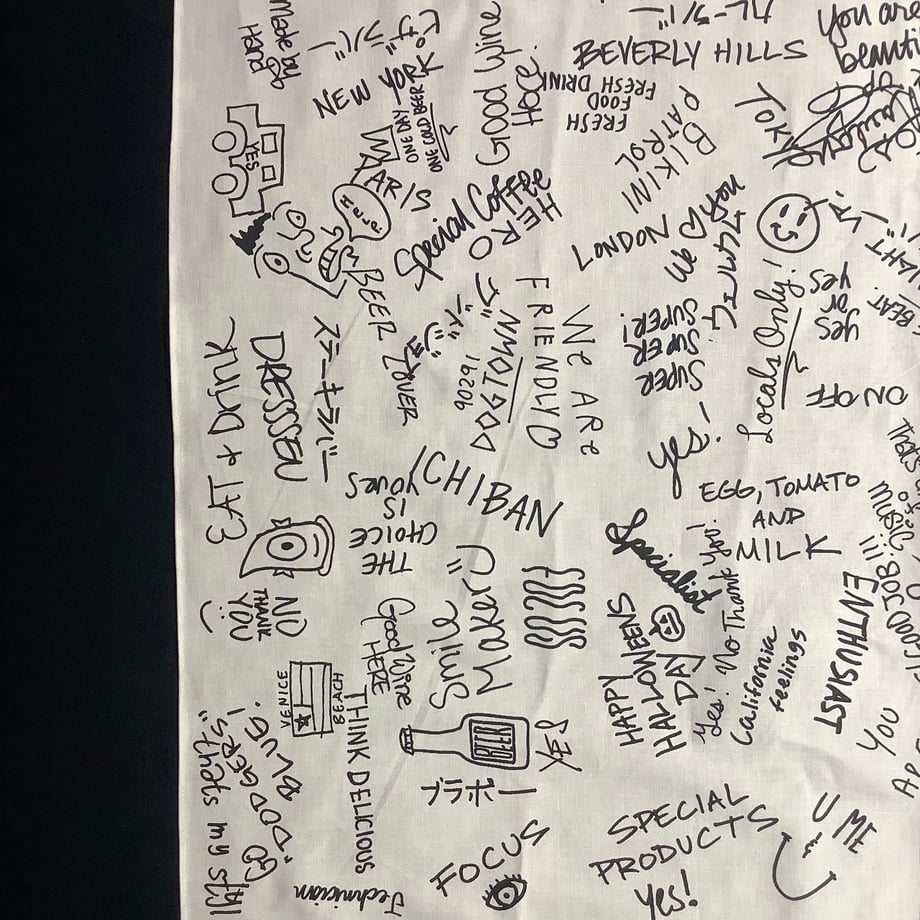 You are
beauti
BEVERLY HILLS
FRESH
FOOD
FRESH DRINK
Good Wine
Here.
NEW YORK
ONE DAY
ONE COLD BEER
PARIS
YES
BIKINI
PATROL
TOKYO
Special Coffee
HERO
LONDON
We ♡ you
BEER LOVER
FRIENDLY
We ARe
DOGTOWN
90291
SUPER
SUPER
SUPER!
Locals Only!
yes
or
yes
ON OFF
EAT + DRINK
DRESSSEN
ステーキラバー
yes!
ICHIBAN
THE
CHOICE
IS
YOURS
EGG, TOMATO
AND
MILK
Specialist
NO
THANK
YOU
Good Wine
HERE
Smile
Maker
HAPPY
HALLOWEENS
DAY
Yes! No Thank You!
California
feelings
ENTHUSIAST
GOOD JOB!!
music
YOU
VENICE
BEACH
THINK DELICIOUS
BEER
ブラボー
GO
"DODGERS"
BLUE!
That's my style
Technician
FOCUS
SPECIAL
PRODUCTS
Yes!
U
&
ME